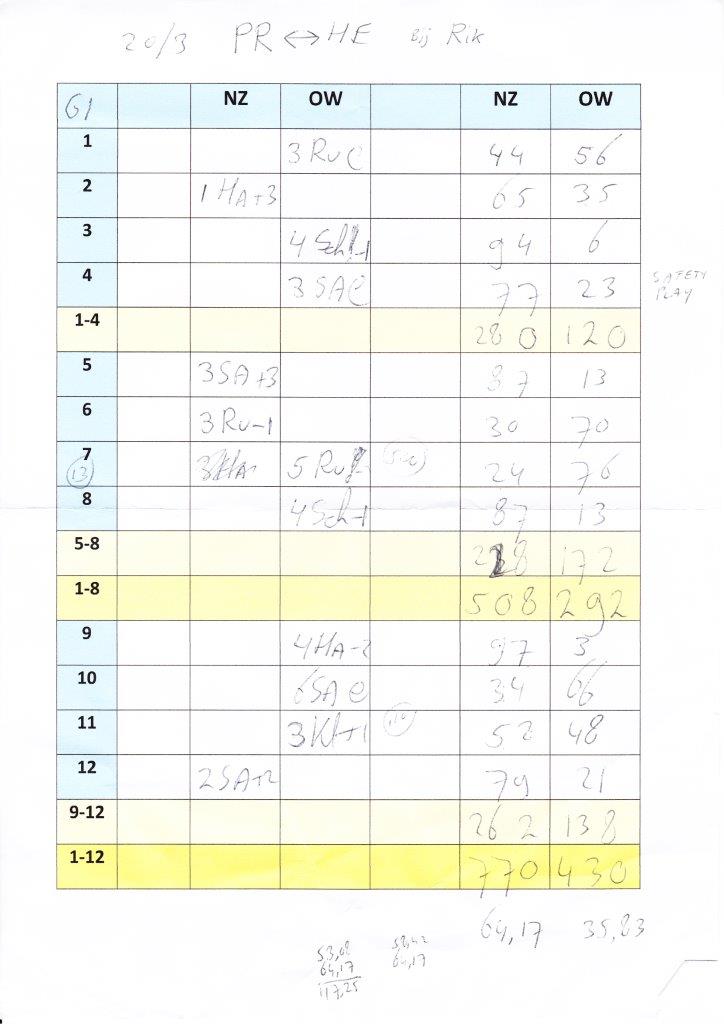 20/3 PR ↔ HE Bij Rik
G1 NZ OW NZ OW
1 3RuC 44 56
2 1HA+3 65 35
3 4Sch-1 94 6
4 3SAC 77 23 SAFETY PLAY
1-4 280 120
5 3SA+3 87 13
6 3Ru-1 30 70
7 5Ru 24 76
13
8 4Sch-1 87 13
5-8 228 172
1-8 508 292
9 4HA-2 97 3
10 6SAC 34 66
11 3Kl+1 52 48
12 2SA+2 79 21
9-12 262 138
1-12 770 430
64,17 35,83
53,08 58,42
64,17 64,17
117,25